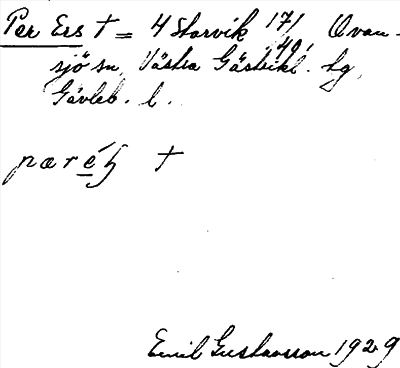 Per Ers † = 4 Storvik 17/40, Ovan-
sjö sn, Västra Gästrikl. hg,
Gävleb. l.
pæréʃ †
Emil Gustavsson 1929